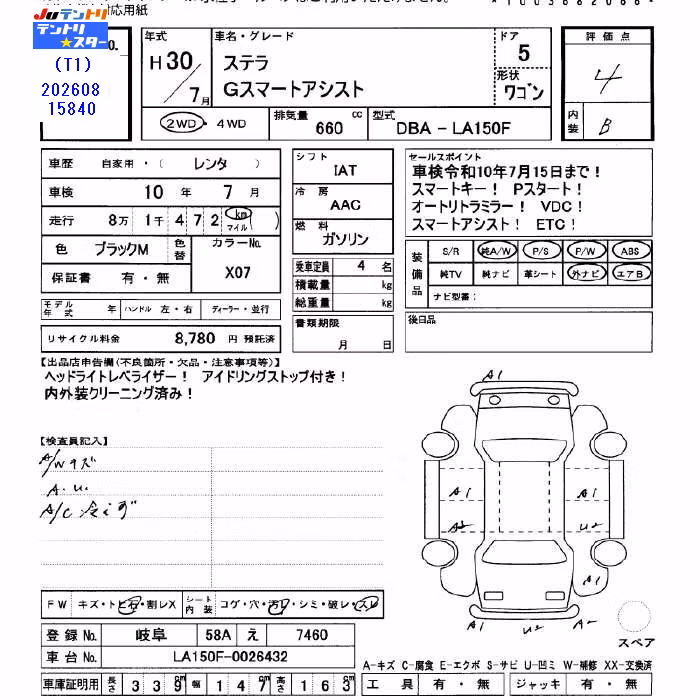 対応用紙
*1003682066*
JUテントリ
テントリ★スター
(T1)
202608
15840
No.
年式
H30/7月
車名・グレード
ステラ
Gスマートアシスト
ドア
5
形状
ワゴン
評価点
4
内装
B
2WD・4WD
排気量
660 cc
型式
DBA - LA150F
車歴 自家用・( レンタ )
車検 10 年 7 月
走行 8万 1千 4 7 2 km マイル ( )
色 ブラックM
色替
カラーNo.
X07
保証書 有・無
シフト
IAT
冷房
AAC
燃料
ガソリン
乗車定員 4 名
積載量 kg
総重量 kg
セールスポイント
車検令和10年7月15日まで!
スマートキー! Pスタート!
オートリトラミラー! VDC!
スマートアシスト! ETC!
装備品
S/R 純A/W P/S P/W ABS
純TV 純ナビ 革シート 外ナビ エアB
ナビ型番:
モデル年式 年 ハンドル 左・右 ディーラー・並行
リサイクル料金 8,780 円 預託済
書類期限
月 日
後日品
【出品店申告欄(不良箇所・欠品・注意事項等)】
ヘッドライトレベライザー! アイドリングストップ付き!
内外装クリーニング済み!
【検査員記入】
A/Wキズ
A.U.
A/C 冷えず
A1
A1
A1
A2
U2
A1
U2
A2
FW キズ・トビ石・割レX
シート内装 コゲ・穴・汚レ・シミ・破レ・スレ
登録No. 岐阜 58A え 7460
車台No. LA150F-0026432
車庫証明用 長さ 3 3 9 cm 幅 1 4 7 cm 高さ 1 6 3 cm
スペア
A-キズ C-腐食 E-エクボ S-サビ U-凹ミ W-補修 XX-交換済
工具 有・無 ジャッキ 有・無